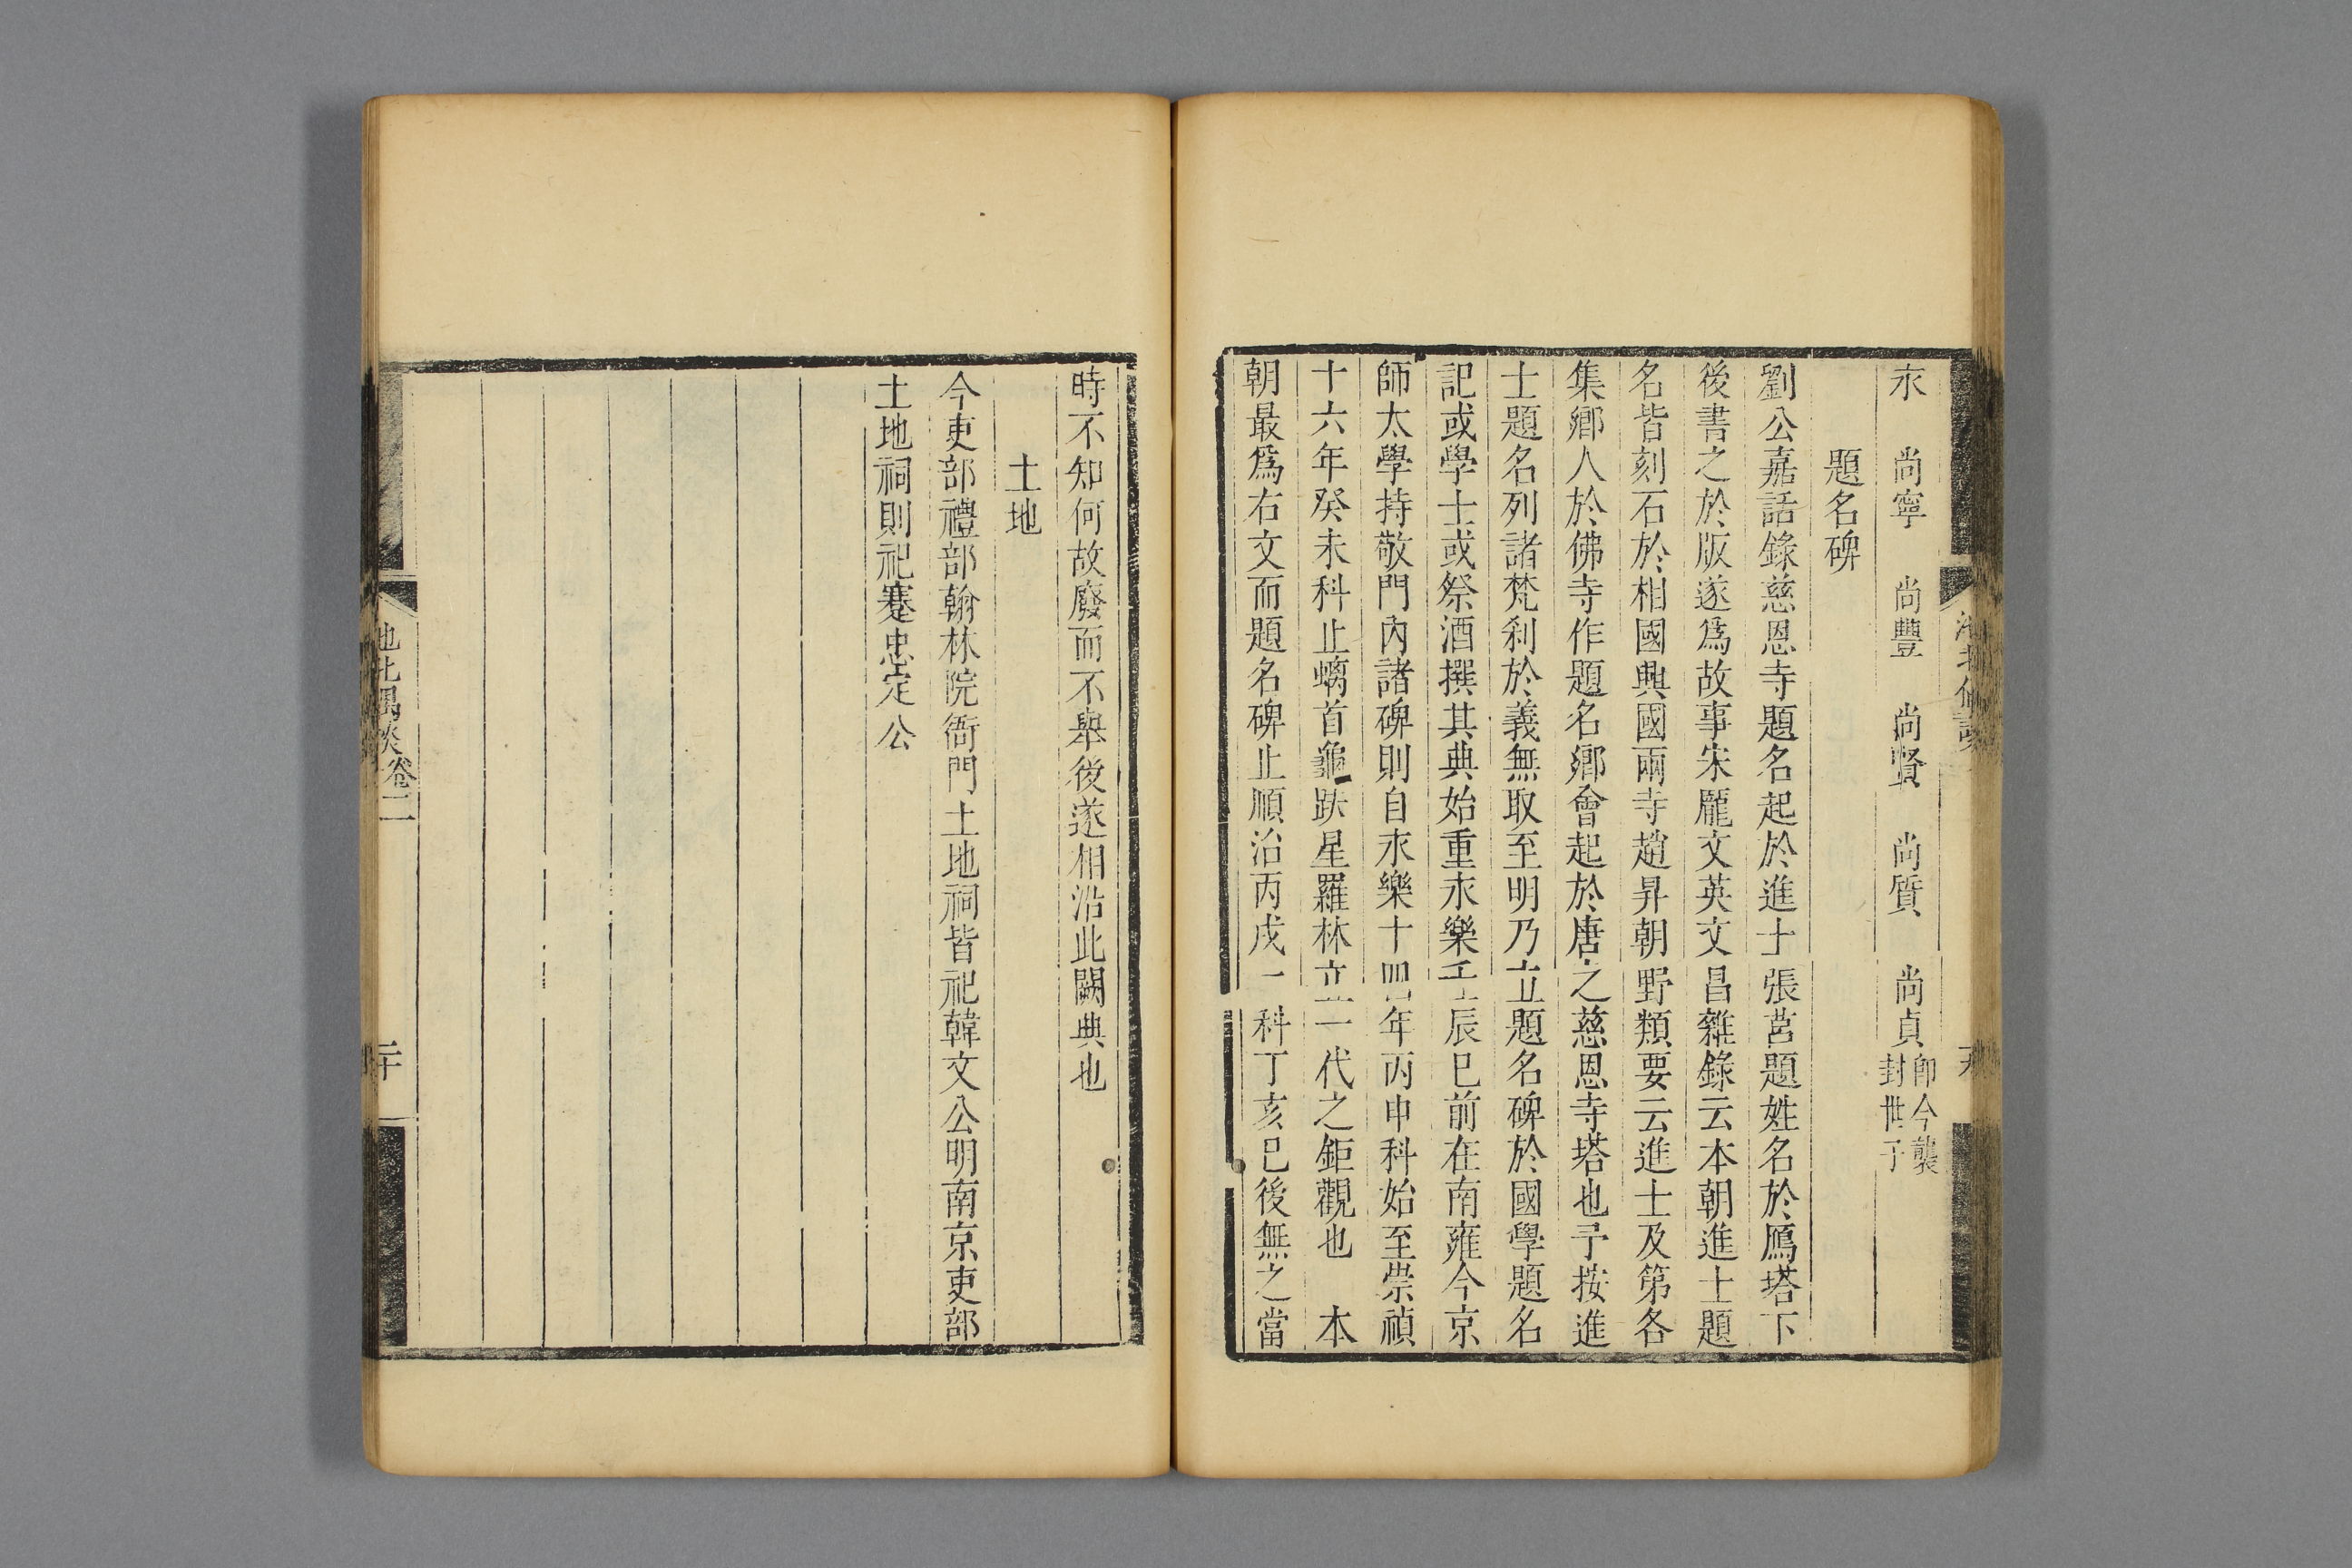 永　尚寧　尚豐　尚賢　尚質　尚貞即今襲封世子
題名碑
劉公嘉話錄慈恩寺題名起於進士張莒題姓名於鴈塔下
後書之於版遂爲故事宋龐文英文昌雜錄云本朝進士題
名皆刻石於相國興國兩寺趙昇朝野類要云進士及第各
集鄉人於佛寺作題名鄉會起於唐之慈恩寺塔也予按進
士題名列諸梵刹於義無取至明乃立題名碑於國學題名
記或學士或祭酒撰其典始重永樂壬辰已前在南雍今京
師太學持敬門內諸碑則自永樂十四年丙申科始至崇禎
十六年癸未科止螭首龜趺星羅林立一代之鉅觀也　本
朝最爲右文而題名碑止順治丙戌一科丁亥已後無之當
時不知何故廢而不舉後遂相沿此闕典也
土地
今吏部禮部翰林院衙門土地祠皆祀韓文公明南京吏部
土地祠則祀蹇忠定公
池北偶談卷二
二十